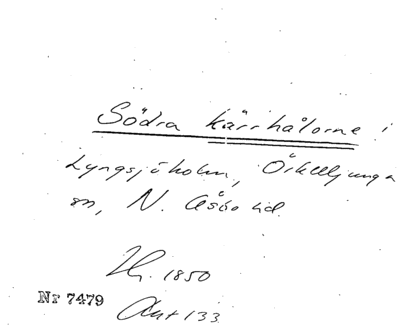 Södra kärrhålorne i
Lyngsjöholm, Örkelljunga
sn, N. Åsbo hd.
1850
Nr 7479
Ant 133